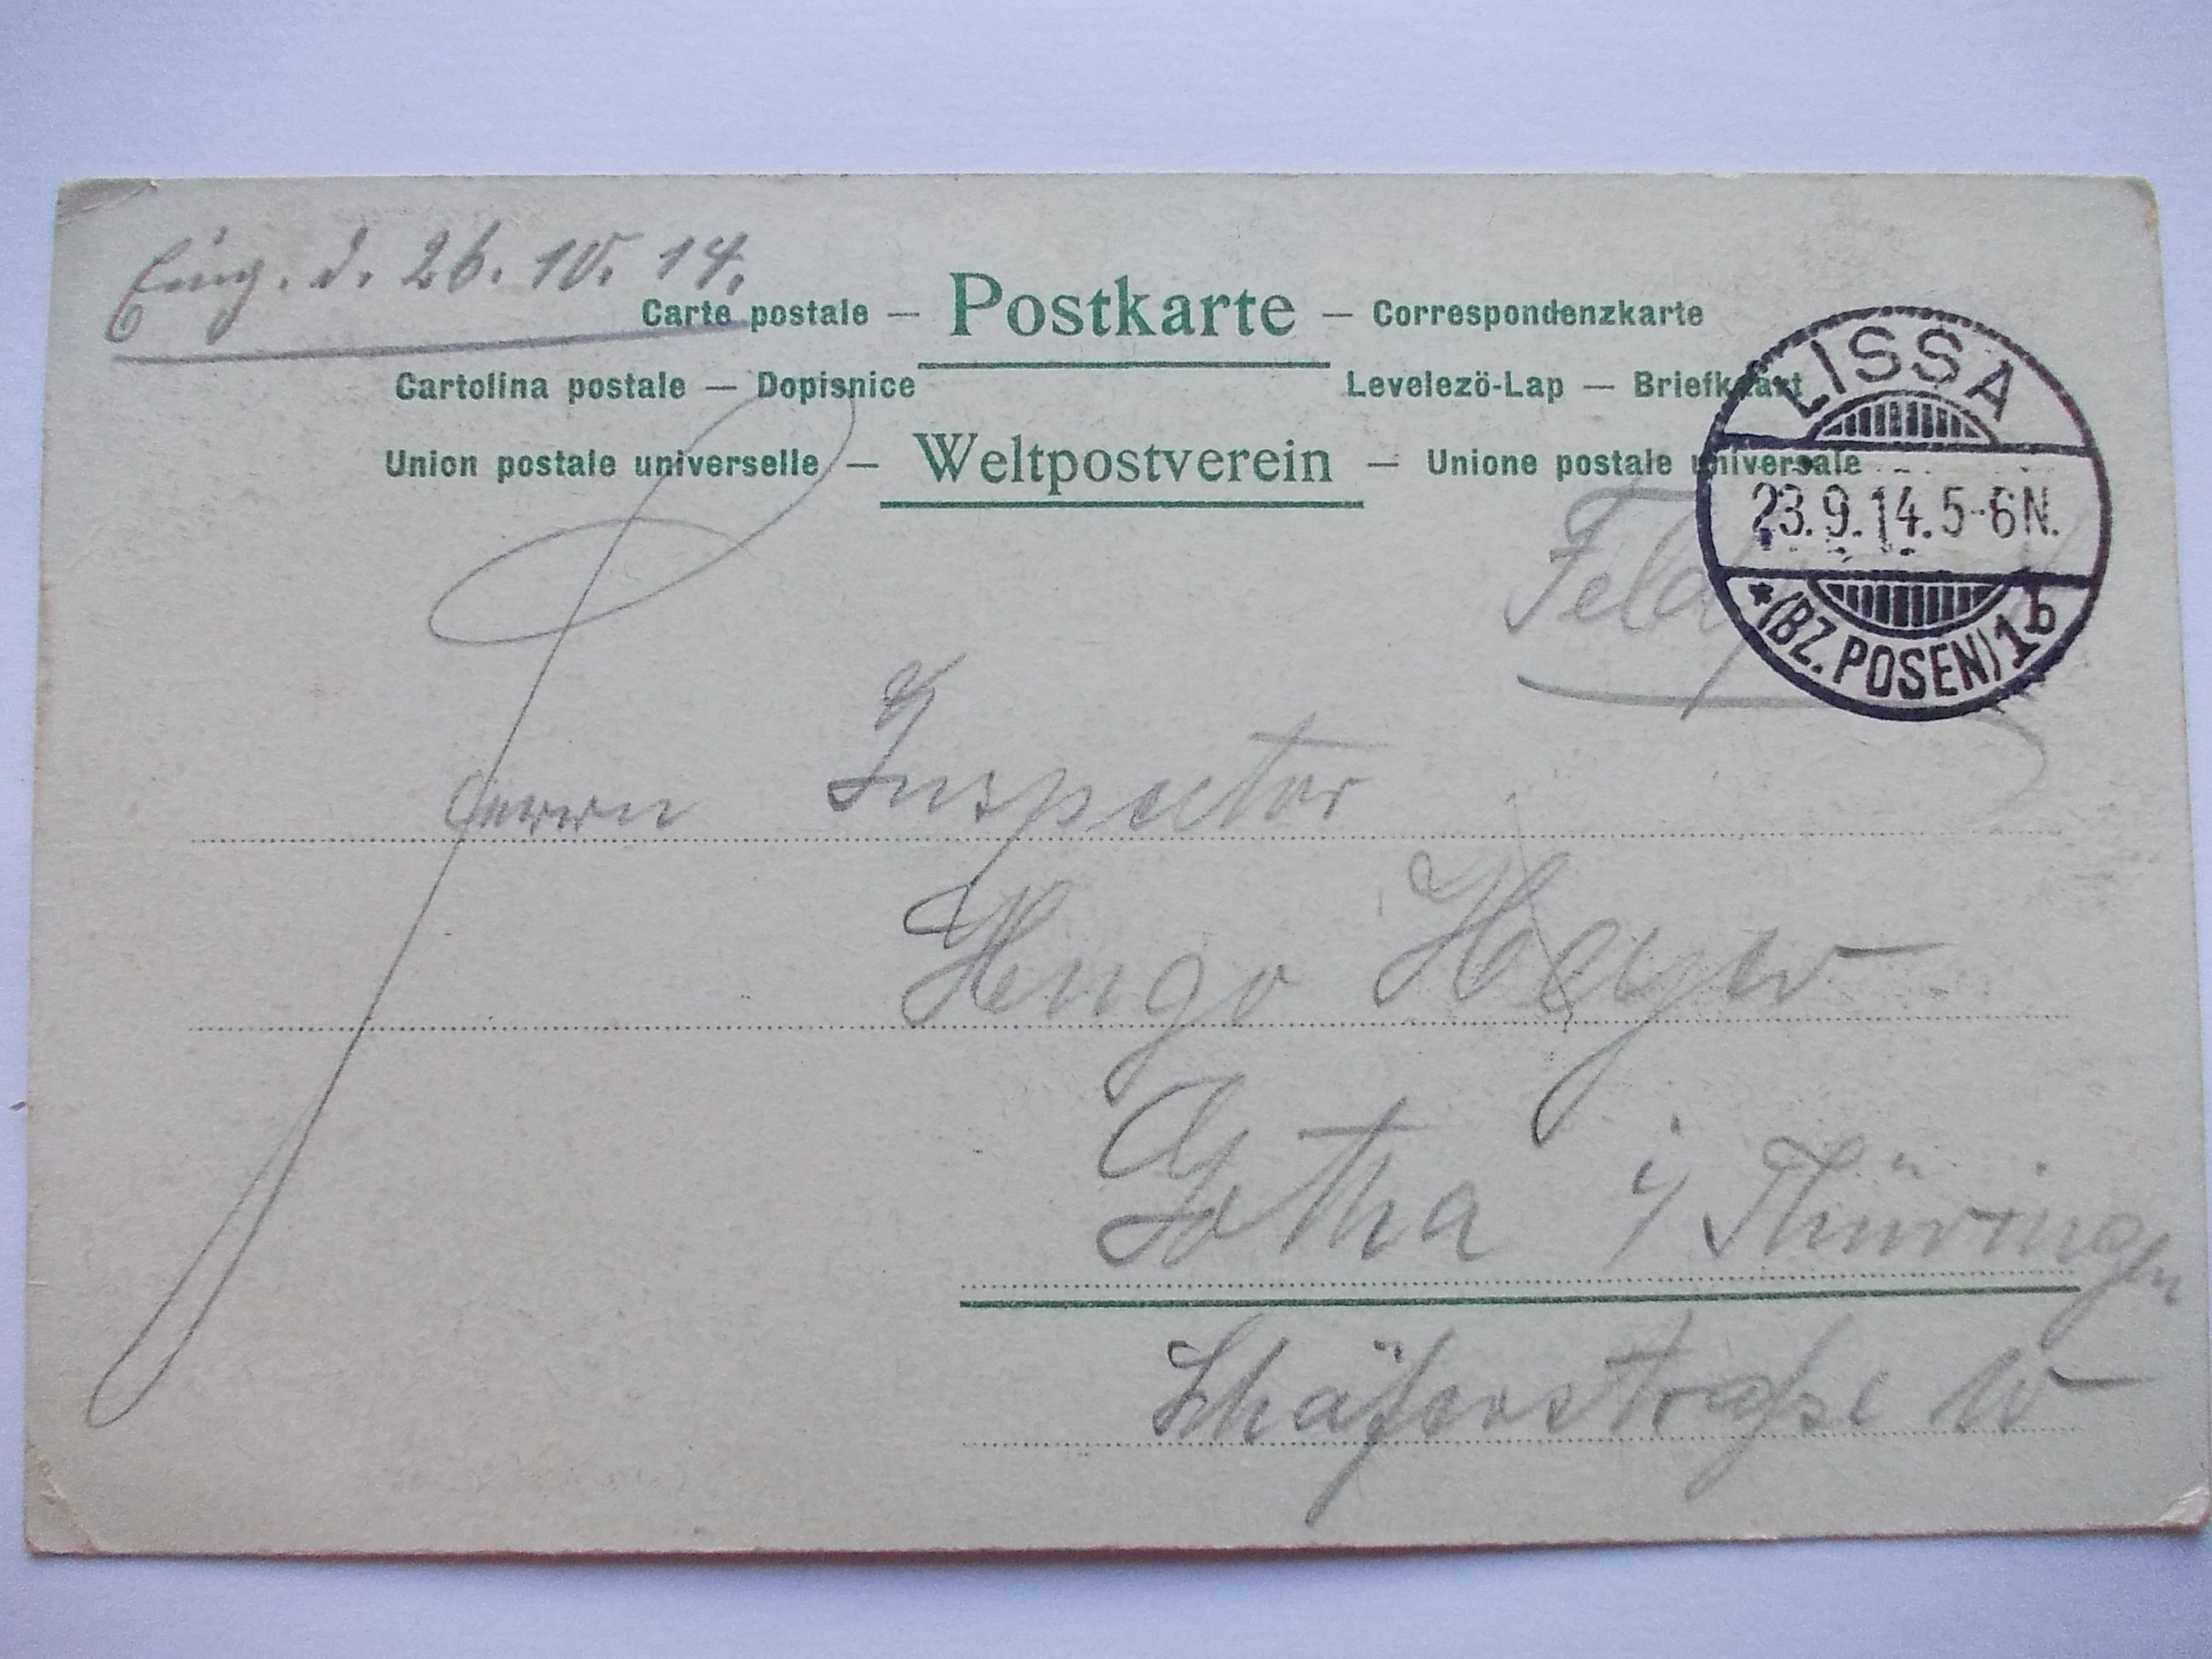 Eing. d. 26. 10. 14.
Carte postale — Postkarte — Correspondenzkarte
Cartolina postale — Dopisnice Levelezö-Lap — Briefkaart
Union postale universelle — Weltpostverein — Unione postale universale
LISSA
23.9.14.5-6N.
* (BZ. POSEN) 1b
Herrn Inspector
Hugo Heyer
Gotha i/ Thüringen
Schäferstraße 10